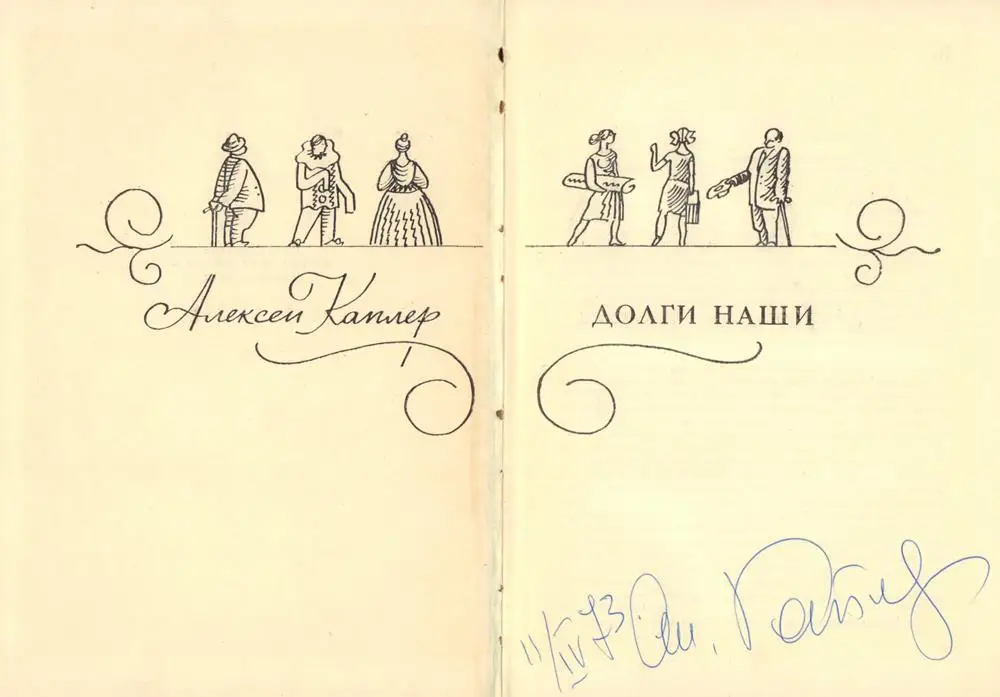 Алексей Каплер
ДОЛГИ НАШИ
11/IV 73 Ал. Каплер